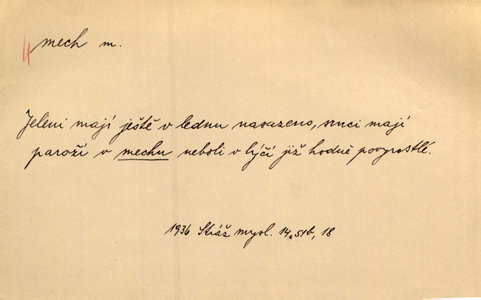 4 mech m.
Jeleni mají ještě v lednu nasazeno, srnci mají
paroží v mechu neboli v lýčí již hodně povyrostlé.
1936 Stráž mysl. 14, 51b, 18